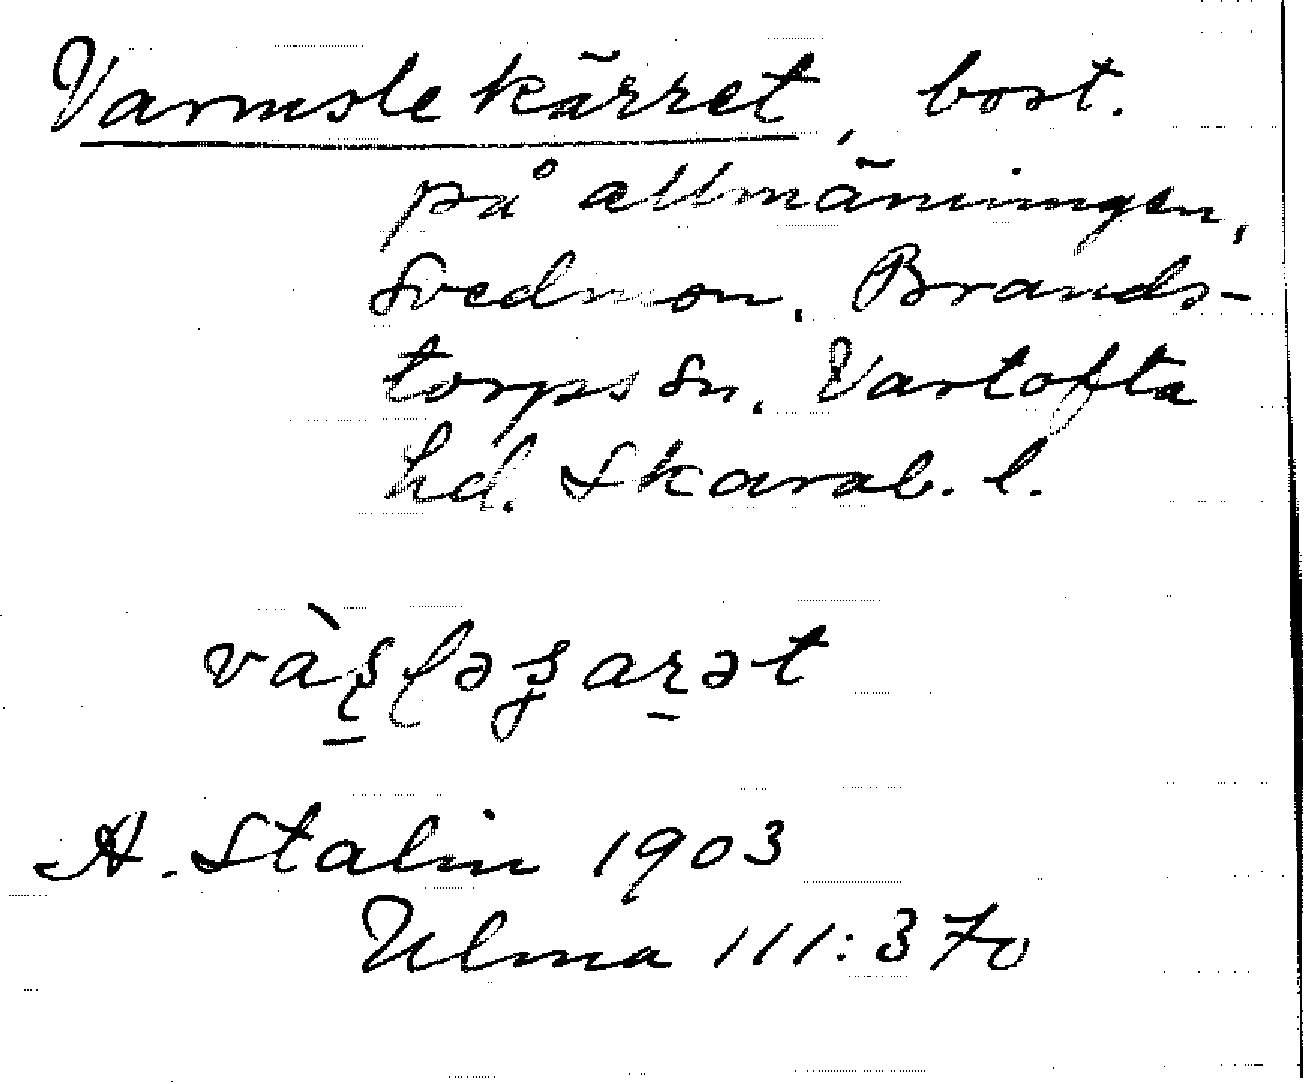 Varmslekärret, bost.
på allmänningen,
Svedmon. Brands-
torps sn. Vartofta
hd. Skarab. l.
A. Stalin 1903
Ulma 111:370